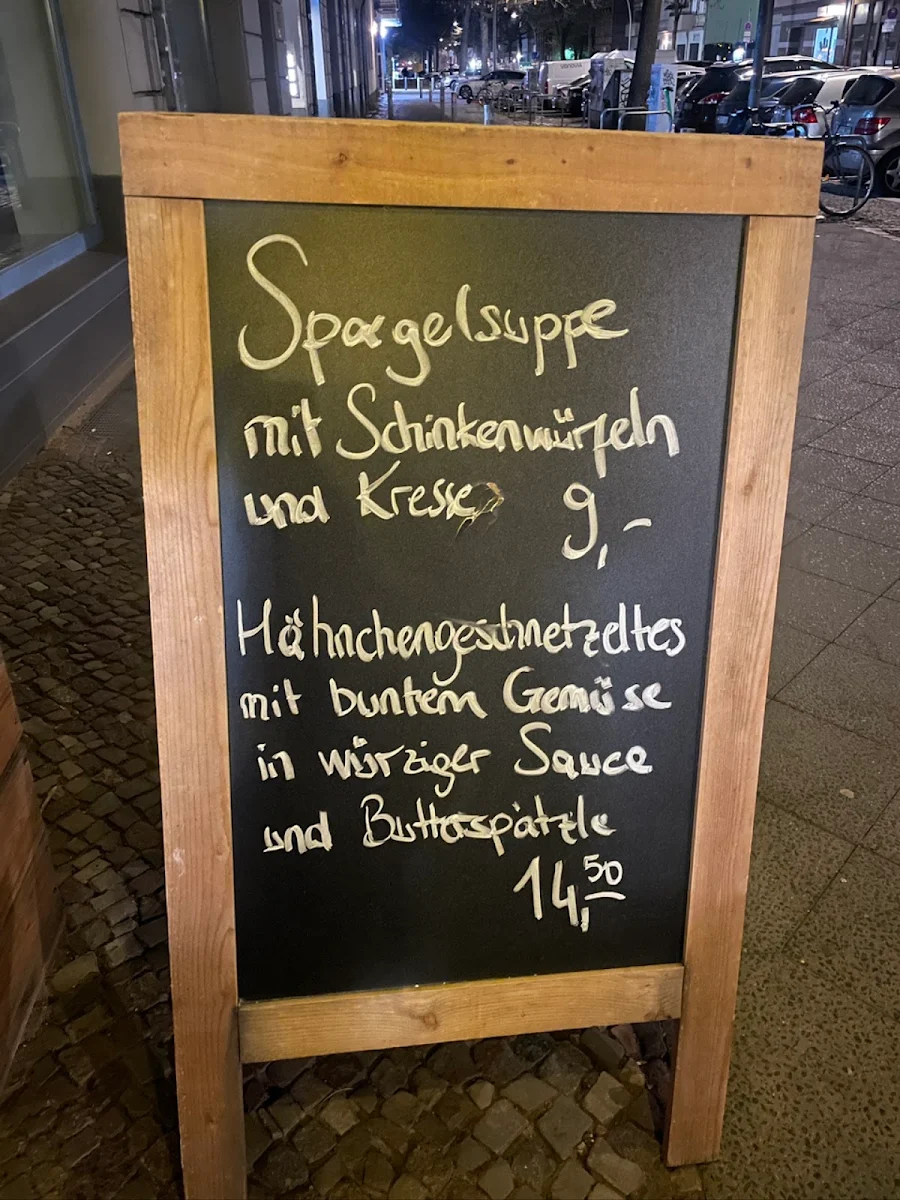 Spargelsuppe
mit Schinkenwürfeln
und Kresse 9,-
Hähnchengeschnetzeltes
mit buntem Gemüse
in würziger Sauce
und Butterspätzle
14,50